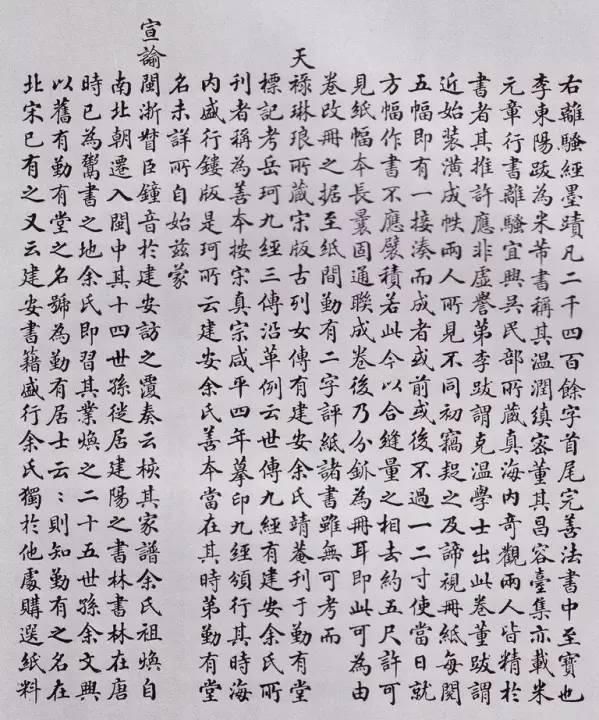 右離騷經墨蹟凡二千四百餘字首尾完善法書中至寶也
李東陽跋為米芾書稱其溫潤縝密董其昌容臺集亦載米
元章行書離騷宜興吳民部所藏真海內奇觀兩人皆精於
書者其推許應非虛譽第李跋謂克溫學士出此卷董跋謂
近始裝潢成帙兩人所見不同初竊疑之及諦視冊紙每閱
五幅即有一接湊而成者或前或後不過一二寸使當日就
方幅作書不應襞積若此今以合縫量之相去約五尺許可
見紙幅本長曩固通聯成卷後乃分𨥤為冊耳即此可為由
卷改冊之据至紙間勤有二字評紙諸書雖無可考而
天祿琳琅所藏宋版古列女傳有建安余氏靖菴刊于勤有堂
標記考岳珂九經三傳沿革例云世傳九經有建安余氏所
刊者稱為善本按宋真宗咸平四年摹印九經頒行其時海
內盛行鏤版是珂所云建安余氏善本當在其時第勤有堂
名未詳所自始茲蒙
宣諭閩浙督臣鐘音於建安訪之覆奏云檢其家譜余氏祖煥自
南北朝遷入閩中其十四世孫徙居建陽之書林書林在唐
時已為鬻書之地余氏即習其業煥之二十五世孫余文興
以舊有勤有堂之名號為勤有居士云:則知勤有之名在
北宋已有之又云建安書籍盛行余氏獨於他處購選紙料